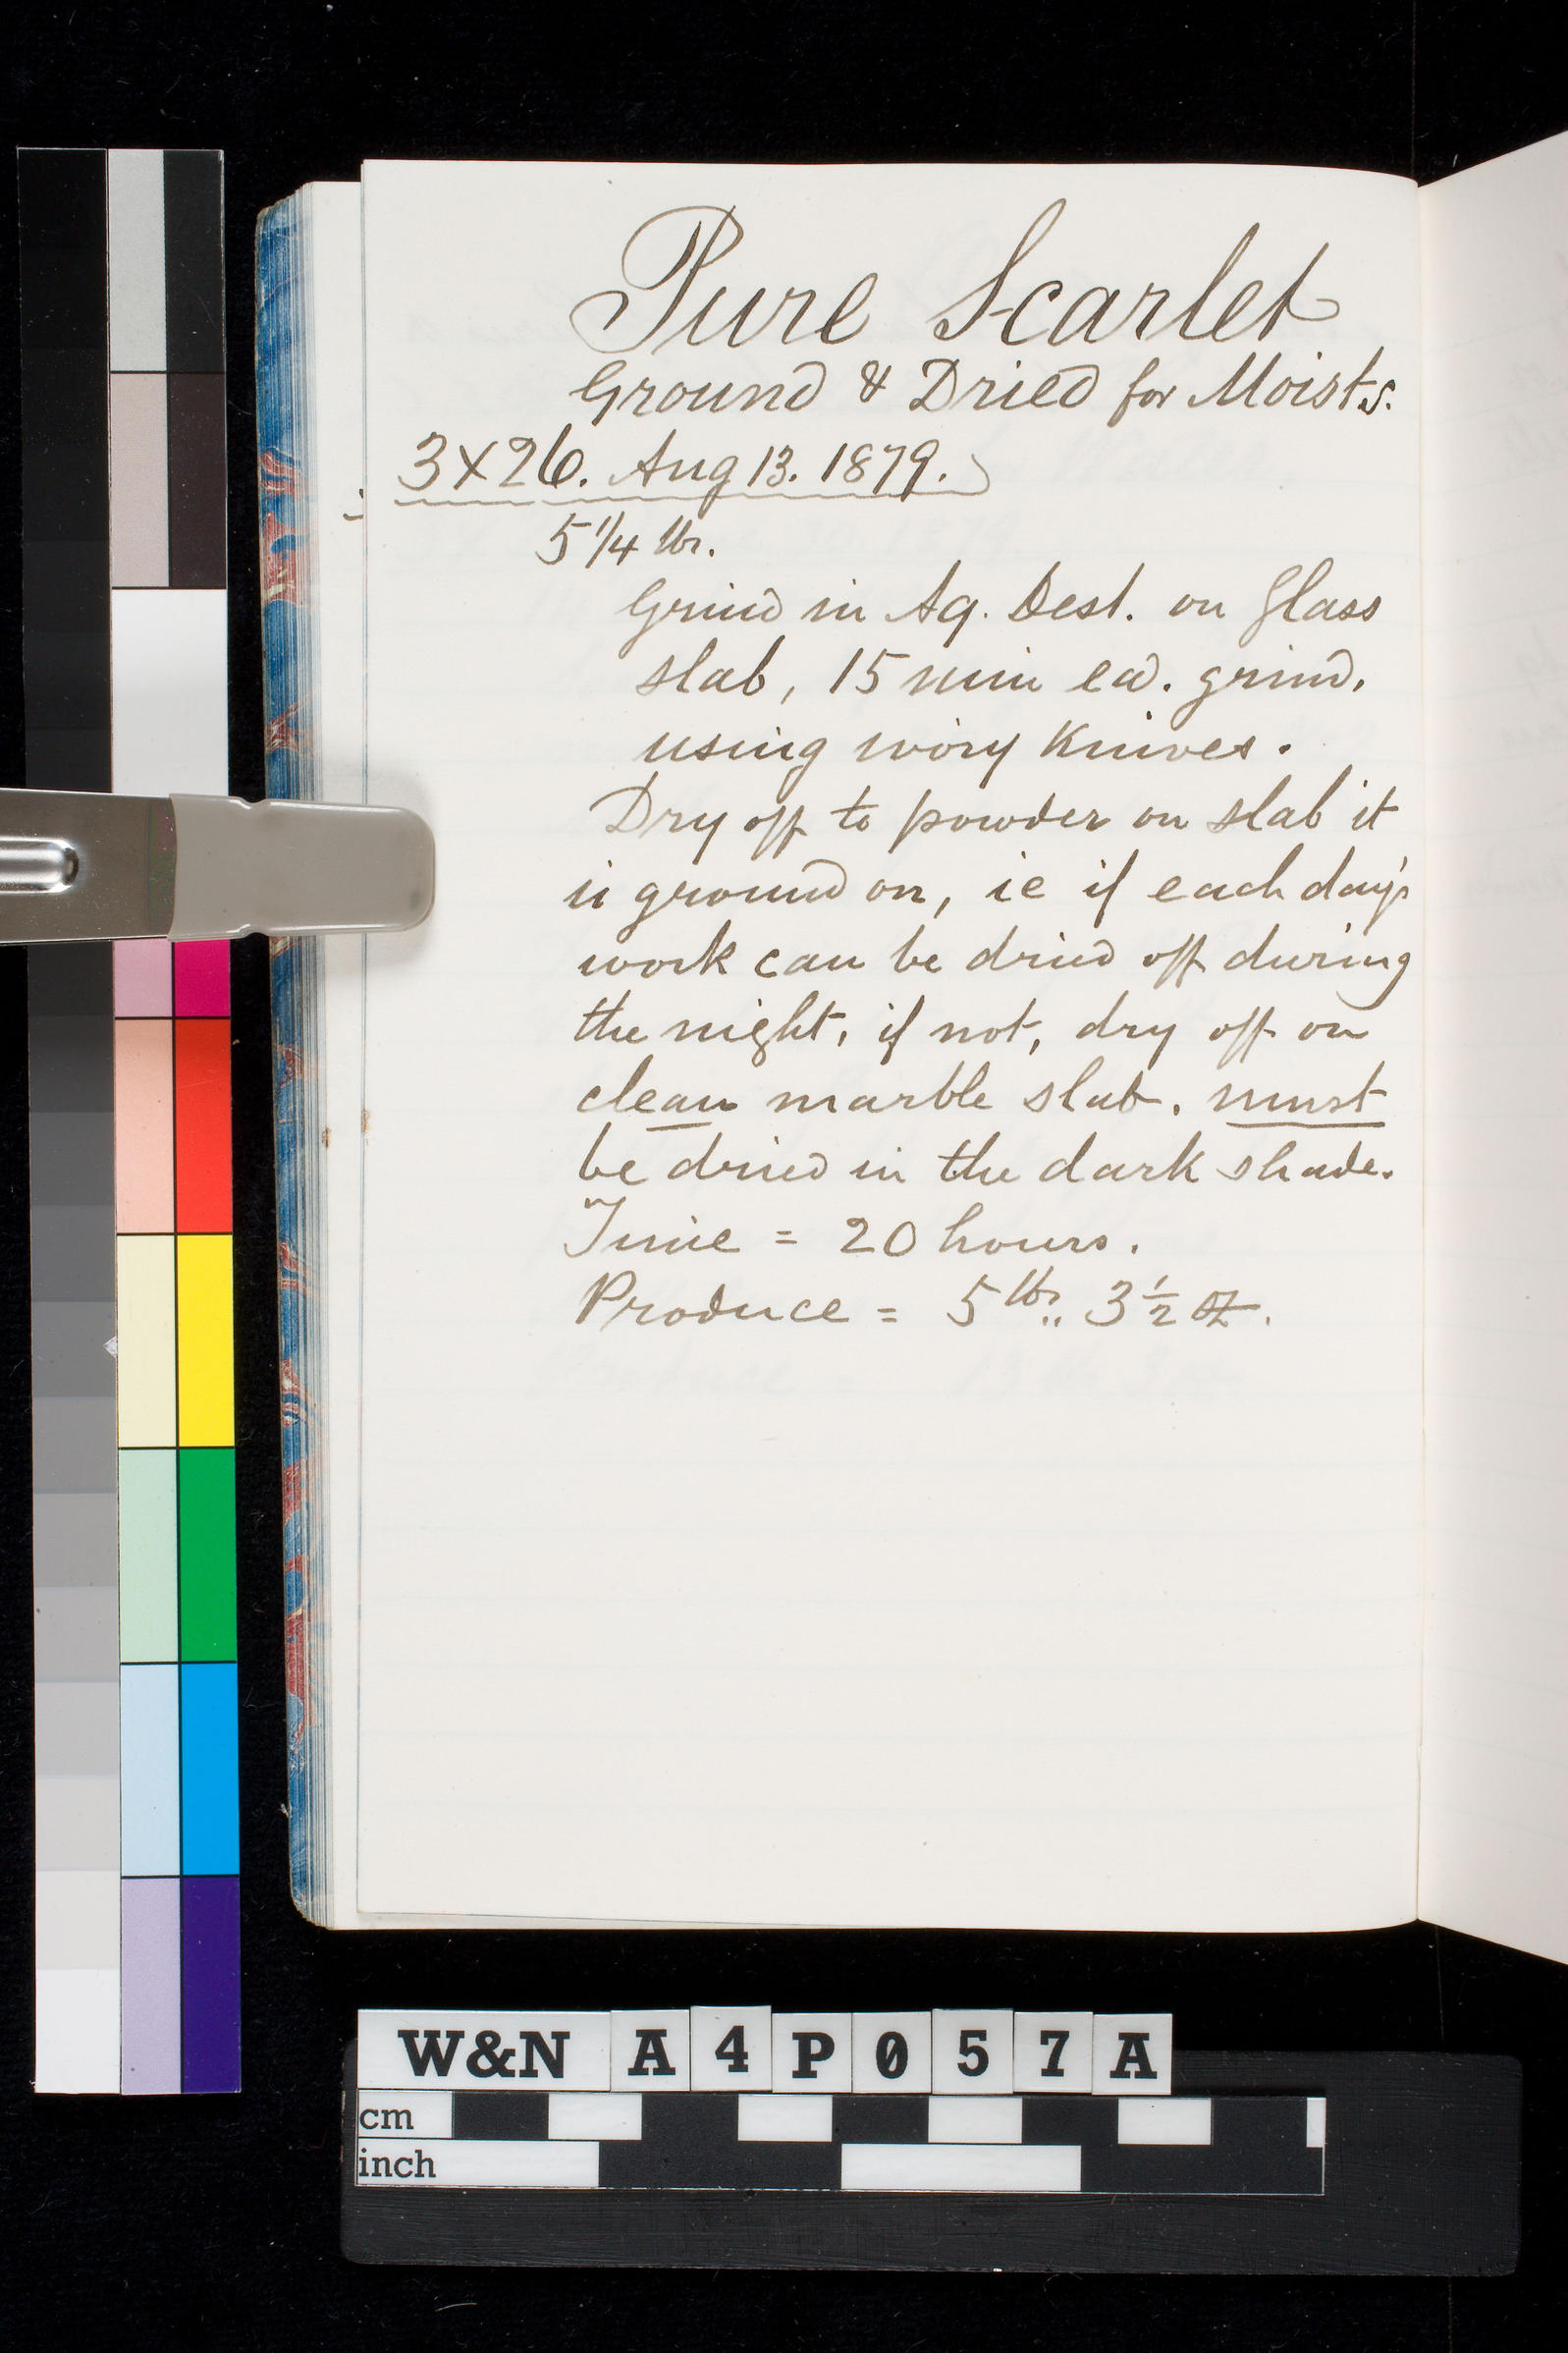 Pure Scarlet
Ground & Dried for Moists.
3X26. Aug 13. 1879.
5 1/4 lbs.
Grind in Aq. Dest. on Glass
slab, 15 min ea. grind,
using ivory Knives.
Dry off to powder on slab it
is ground on, ie if each day's
work can be dried off during
the night, if not, dry off on
clean marble slab. must
be dried in the dark shade.
Time = 20 hours.
Produce = 5 lbs,, 3 1/2 oz.
W&N A4P057A
cm
inch